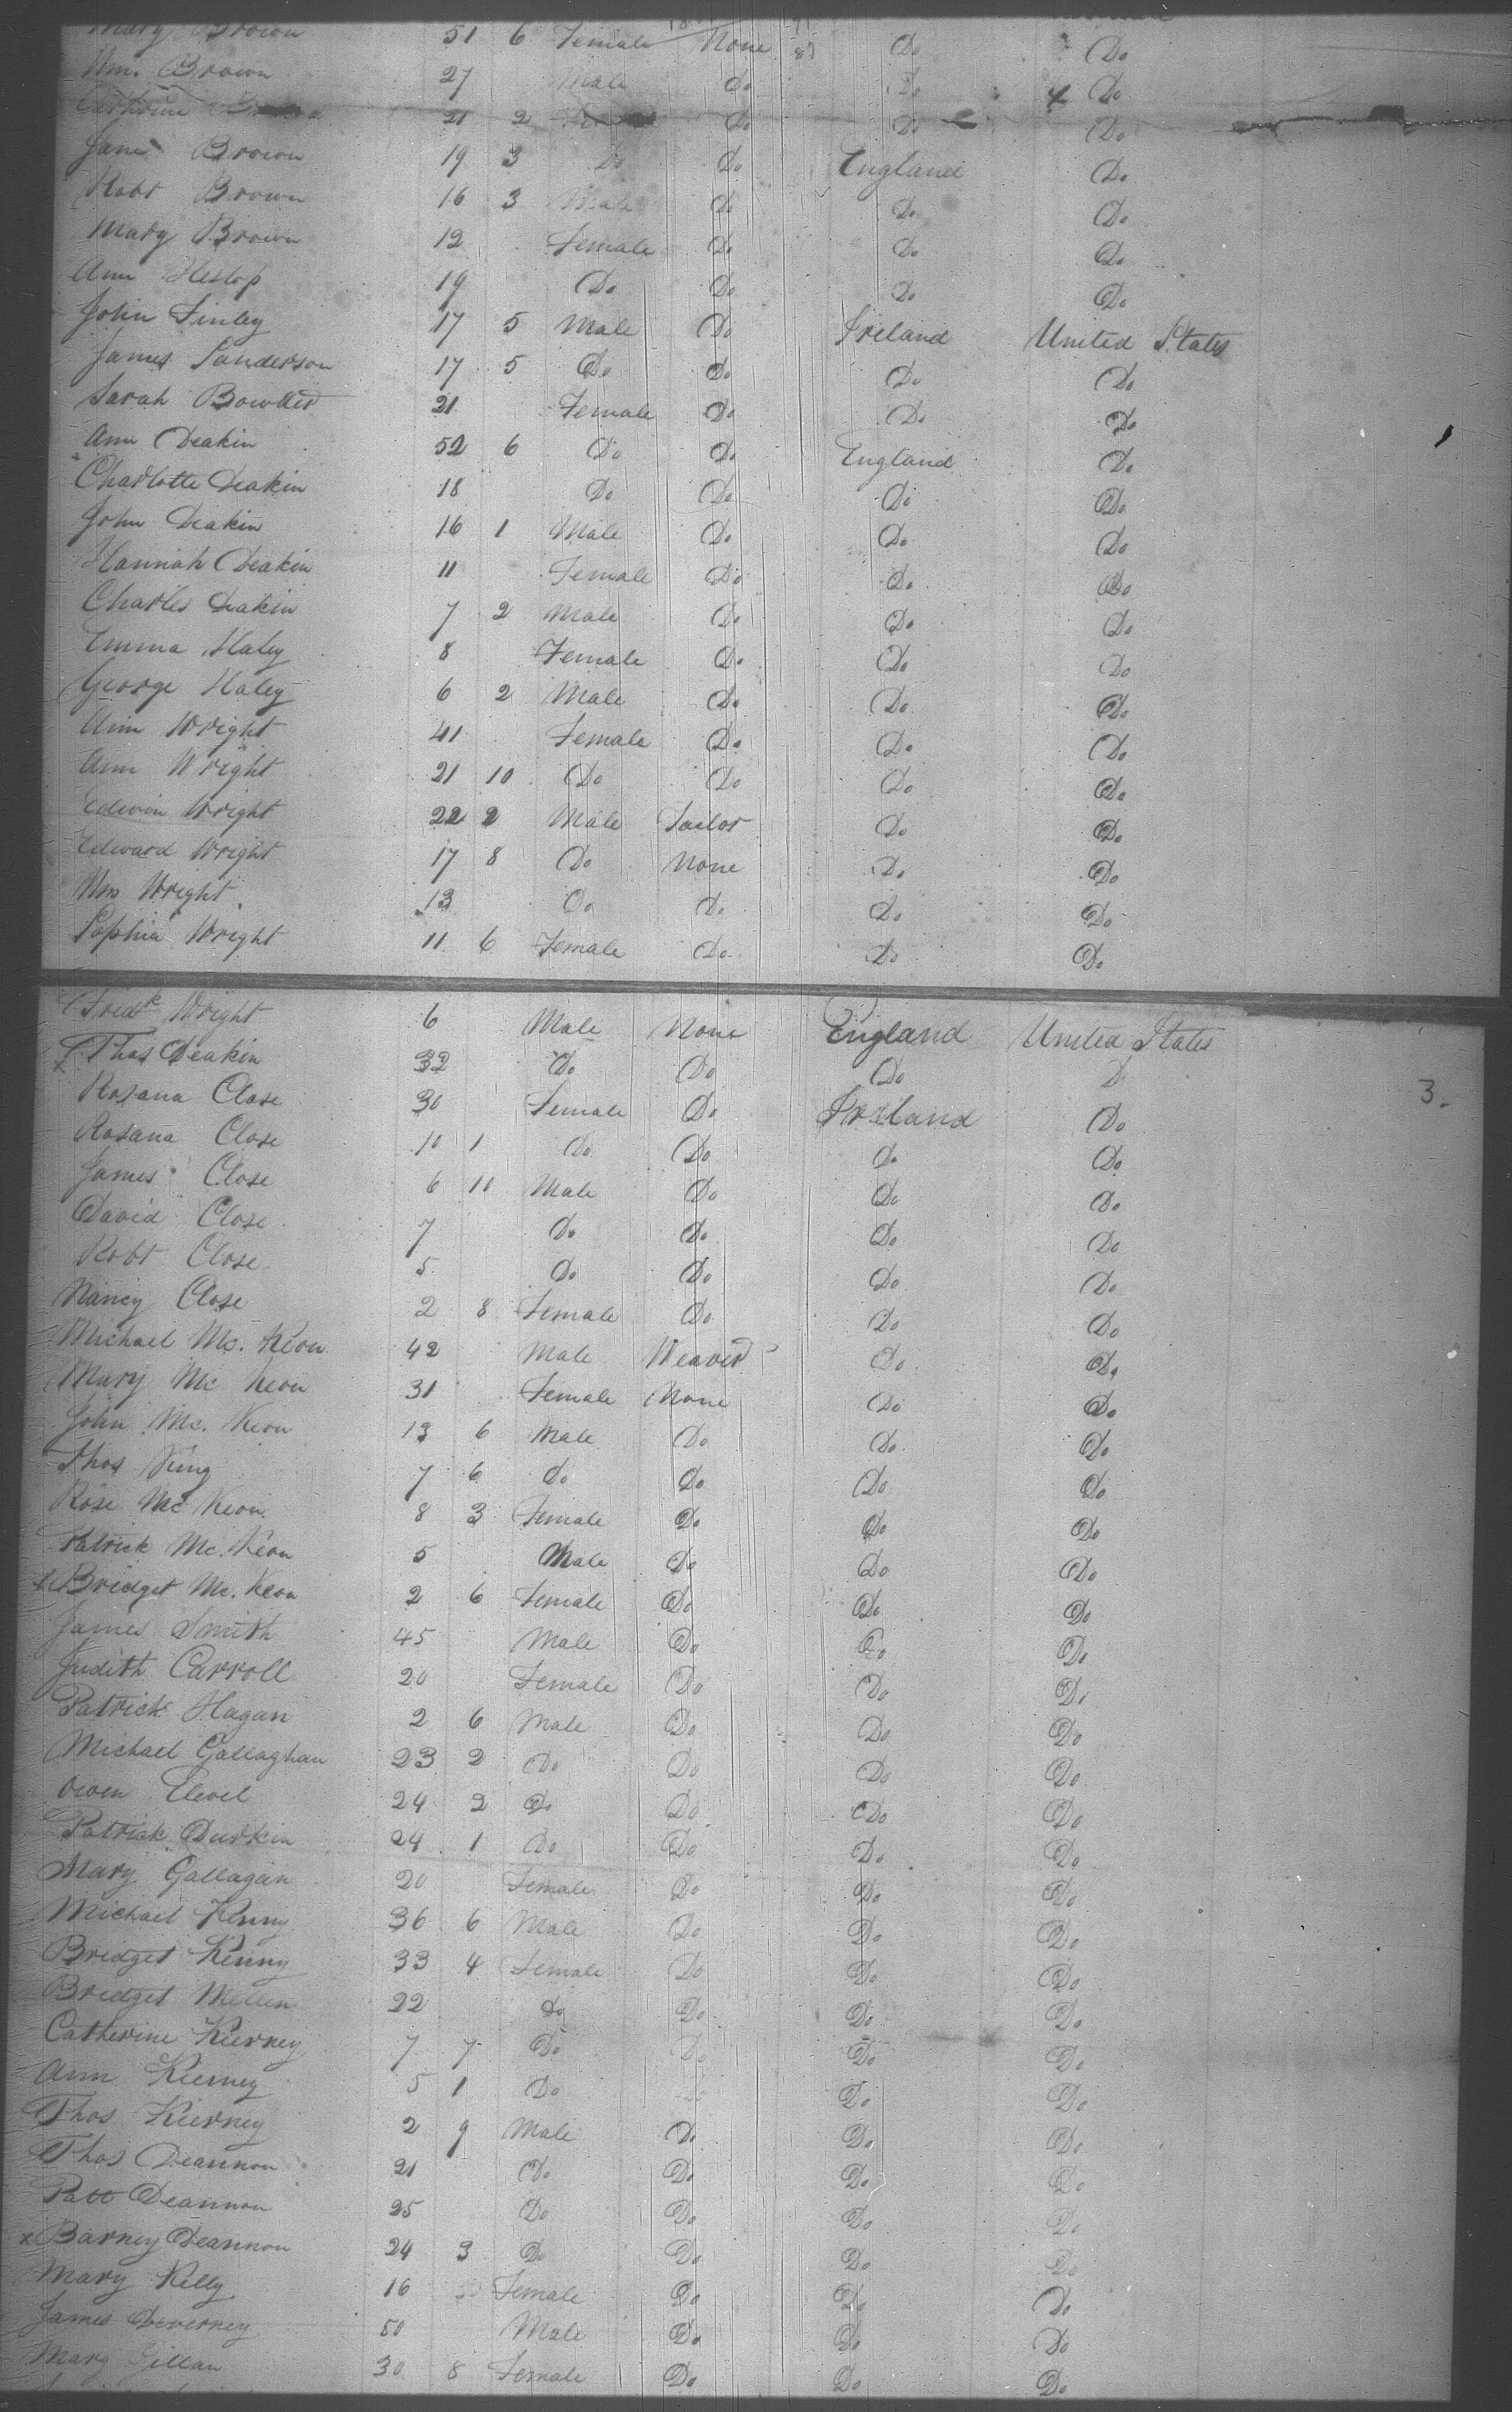 Mary Brown 51 6 Female None Do Do
Wm. Brown 27 Male do Do Do
Catherine 21 2 Do Do Do
Jane Brown 19 3 Do Do England Do
Robt Brown 16 3 Male Do Do Do
Mary Brown 12 Female Do Do Do
Ann Heslop 19 Do Do Do Do
John Finley 17 5 Male Do Ireland United States
James Sanderson 17 5 Do Do Do Do
Sarah Bowller 21 Female Do Do Do
Ann Deakin 52 6 Do Do England Do
Charlotte Deakin 18 Do Do Do Do
John Deakin 16 1 Male Do Do Do
Hannah Deakin 11 Female Do Do Do
Charles Deakin 7 2 Male Do Do Do
Emma Haley 8 Female Do Do Do
George Haley 6 2 Male Do Do Do
Ann Wright 41 Female Do Do Do
Ann Wright 21 10 Do Do Do Do
Edwin Wright 22 2 Male Tailor Do Do
Edward Wright 17 8 Do None Do Do
Wm Wright 13 Do Do Do Do
Sophia Wright 11 6 Female Do Do Do
Fredk Wright 6 Male None England United States
Thos Deakin 32 Do Do Do D
3.
Rosana Close 30 Female Do Ireland Do
Rosana Close 10 1 Do Do Do Do
James Close 6 11 Male Do Do Do
David Close 7 Do Do Do Do
Robt Close 5 Do Do Do Do
Nancy Close 2 8 Female Do Do Do
Michael Mc. Keon 42 Male Weaver Do Do
Mary Mc Keon 31 Female None Do Do
John Mc. Keon 13 6 Male Do Do Do
Thos King 7 6 do Do Do Do
Rose Mc Keon 8 3 Female Do Do Do
Patrick Mc. Keon 5 Male Do Do Do
x Bridget Mc. Keon 2 6 Female Do Do Do
James Smith 45 Male Do Do Do
Judith Carroll 20 Female Do Do Do
Patrick Hagan 2 6 Male Do Do Do
Michael Gallaghan 23 2 Do Do Do Do
Owen Elevel 24 2 Do Do Do Do
Patrick Durkin 24 1 Do Do Do Do
Mary Gallagan 20 Female Do Do Do
Michael Kenny 36 6 Male Do Do Do
Bridget Kenny 33 4 Female Do Do Do
Bridget 22 Do Do Do Do
Catherine Kierney 7 7 Do Do Do Do
Ann Kierney 5 1 Do Do Do
Thos Kierney 2 9 Male Do Do Do
Thos Deannon 21 Do Do Do Do
Patt Deannon 25 Do Do Do Do
x Barney Deannon 24 3 Do Do Do Do
Mary Kelly 16 Female Do Do Do
James Deverney 50 Male Do Do Do
Mary Gillan 30 8 Female Do Do Do